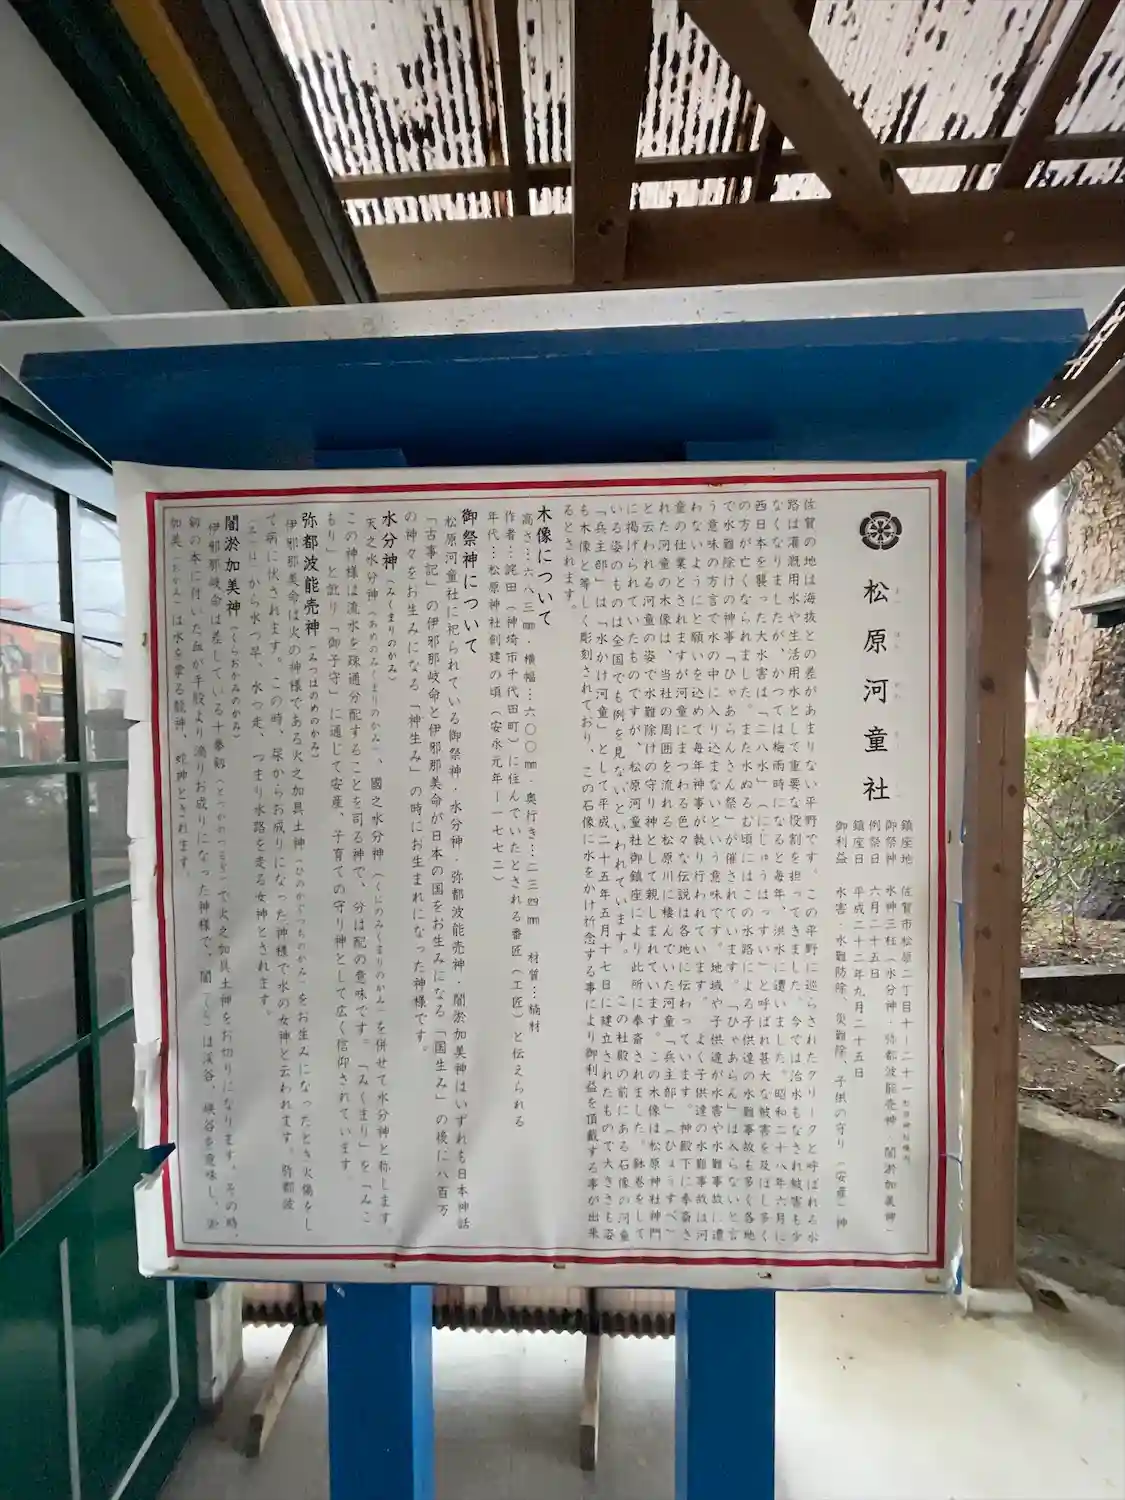 松原河童社
まつばらかっぱしゃ
鎮座地　佐賀市松原二丁目十―二十一 松原神社境内
御祭神　水神三柱（水分神・弥都波能売神・闇淤加美神）
例祭日　六月二十五日
鎮座日　平成二十二年九月二十五日
御利益　水害・水難防除、災難除、子供の守り（安産）神
佐賀の地は海抜との差があまりない平野です。この平野に巡らされたクリークと呼ばれる水
路は灌漑用水や生活用水として重要な役割を担ってきました。今では治水もなされ被害も少
なくなりましたが、かつては梅雨時になると毎年、洪水に遭いました。昭和二十八年六月に
西日本を襲った大水害は「二八水」（にじゅうはっすい）と呼ばれ甚大な被害を及ぼし多く
の方が亡くなられました。また水ぬるむ頃にはこの水路による子供達の水難事故も多く各地
で水難除けの神事「ひゃあらんさん祭」が催されています。「ひゃあらん」は入らないと言
う意味の方言で水の中に入り込まないという意味です。地域や子供達が水害や水難事故に遭
わないようにと願いを込めて毎年神事が執り行われています。　よく子供達の水難事故は河
童の仕業とされますが河童にまつわる色々な伝説は各地に伝わっています。神殿下に奉斎さ
れた河童の木像は、当社の周囲を流れる松原川に棲んでいた河童「兵主部」（ひょうすべ）
と云われる河童の姿で水難除けの守り神として親しまれています。この木像は松原神社神門
に掲げられていたものですが、松原河童社御鎮座により此所に奉斎されました。鉢巻をして
いる姿のものは全国でも例を見ないといわれています。　この社殿の前にある石像の河童
「兵主部」は「水かけ河童」として平成二十五年五月十七日に建立されたもので大きさも姿
も木像と等しく彫刻されており、この石像に水をかけ祈念する事により御利益を頂戴する事が出来
るとされます。
木像について
高さ…六八三㎜・横幅…六〇〇㎜・奥行き…二三四㎜　材質…楠材
作者…詫田（神埼市千代田町）に住んでいたとされる番匠（工匠）と伝えられる
年代…松原神社創建の頃（安永元年―一七七二）
御祭神について
松原河童社に祀られている御祭神・水分神・弥都波能売神・闇淤加美神はいずれも日本神話
「古事記」の伊邪那岐命と伊邪那美命が日本の国をお生みになる「国生み」の後に八百万
の神々をお生みになる「神生み」の時にお生まれになった神様です。
水分神（みくまりのかみ）
天之水分神（あめのみくまりのかみ）、國之水分神（くにのみくまりのかみ）を併せて水分神と称します。
この神様は流水を疎通分配することを司る神で、分は配の意味です。「みくまり」を「みこ
もり」と訛り「御子守」に通じて安産、子育ての守り神として広く信仰されています。
弥都波能売神（みつはのめのかみ）
伊邪那美命は火の神様である火之加具土神（ひのかぐつちのかみ）をお生みになったとき火傷をし
て病に伏されます。この時、尿からお成りになった神様で水の女神と云われます。弥都波
から水つ早、水つ走、つまり水路を走る女神とされます。
闇淤加美神（くらおかみのかみ）
伊邪那岐命は差している十拳剱（とつかのつるぎ）で火之加具土神をお切りになります。その時、
剱の本に付いた血が手股より滴りお成りになった神様で、闇（くら）は渓谷、峡谷を意味し、淤
加美（おかみ）は水を掌る龍神、蛇神とされます。